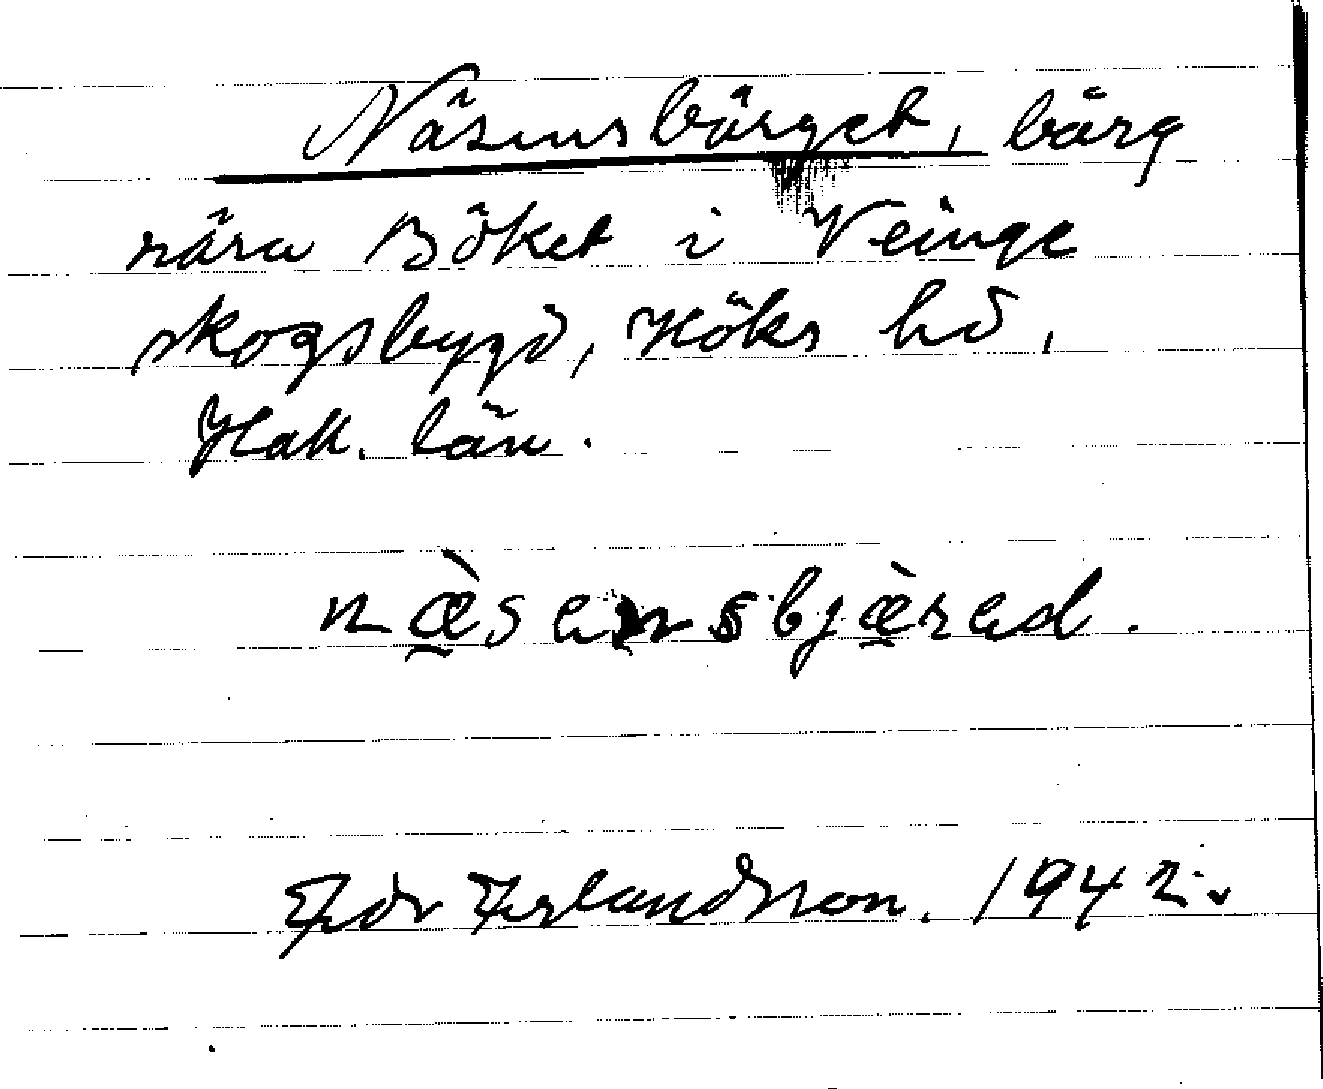 Näsensbärget, bärg
nära Böket i Veinge
skogsbygd, Höks hd,
Hall. län.
næ̀sensbjæ̀red.
Edv Erlandsson. 1942.